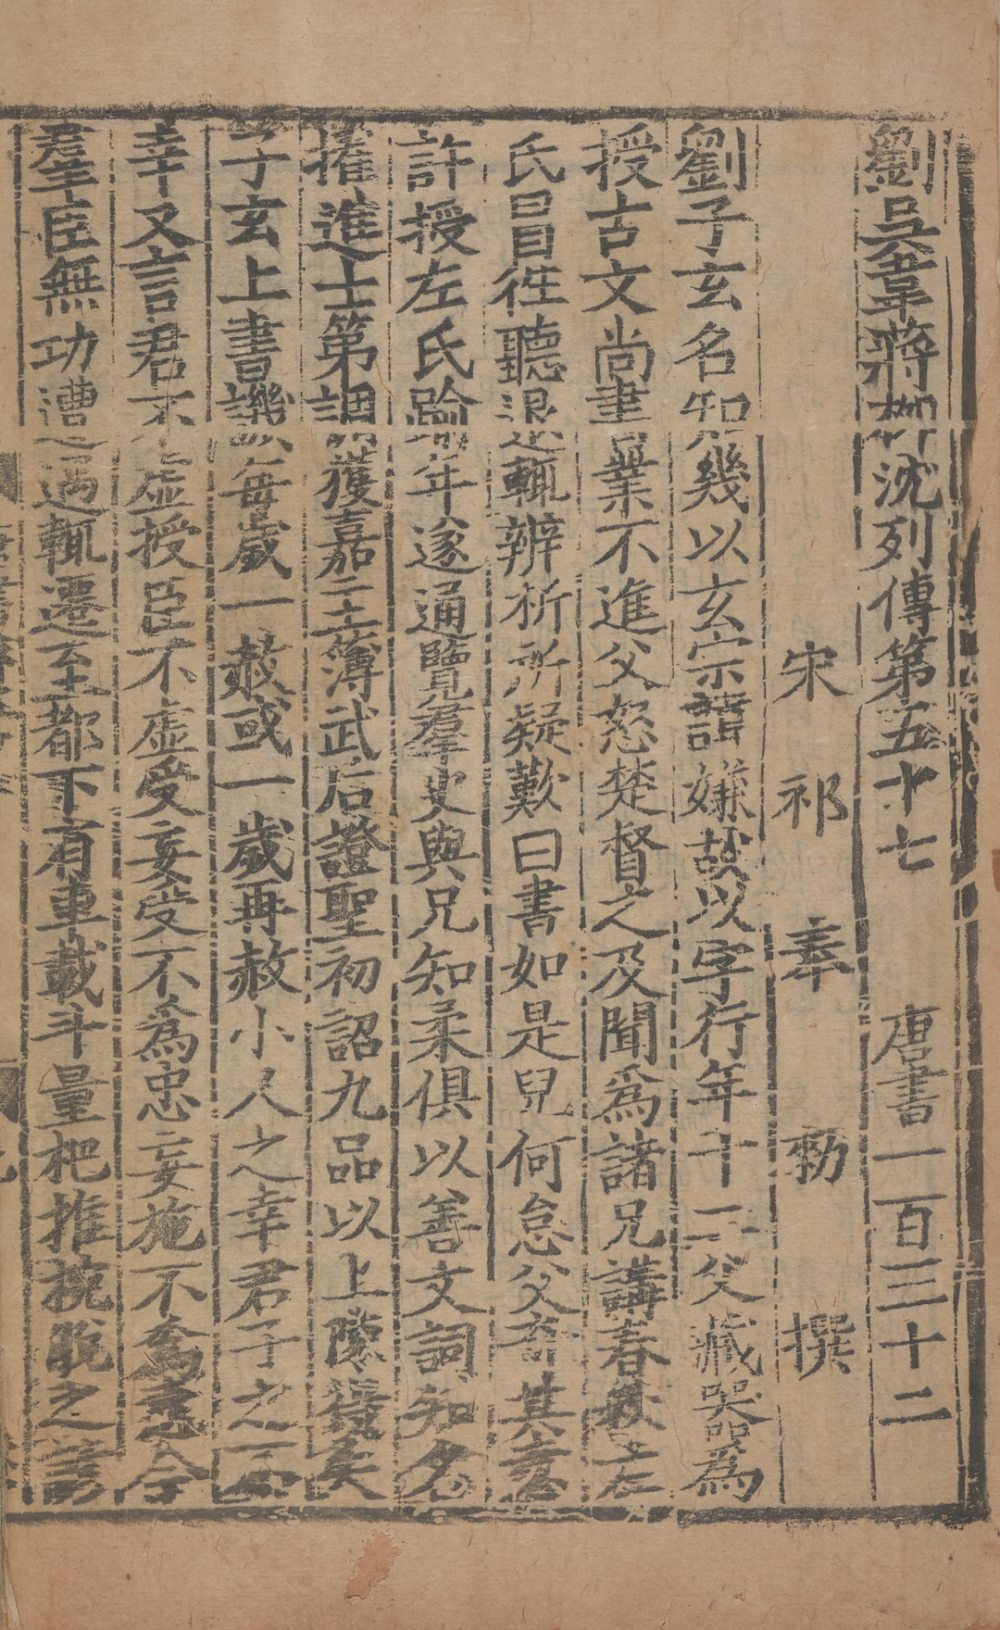 劉吳韋蔣柳沈列傳第五十七　唐書一百三十二
宋祁奉勑撰
劉子玄名知幾以玄宗諱嫌故以字行年十二父藏器爲
授古文尚書業不進父怒楚督之及聞爲諸兄講春秋左
氏冒冒徃聽退輒辨析所疑歎曰書如是兒何怠父奇其意
許授左氏踰年遂通覽羣史與兄知柔俱以善文詞知名
擢進士第調獲嘉主薄武后證聖初詔九品以上陳得失
子玄上書譏每歲一赦或一歲再赦小人之幸君子之不
幸又言君不虛授臣不虛受妄受不爲忠妄施不爲惠今
羣臣無功遭遇輒遷至都下有車載斗量杷推椀脫之諺